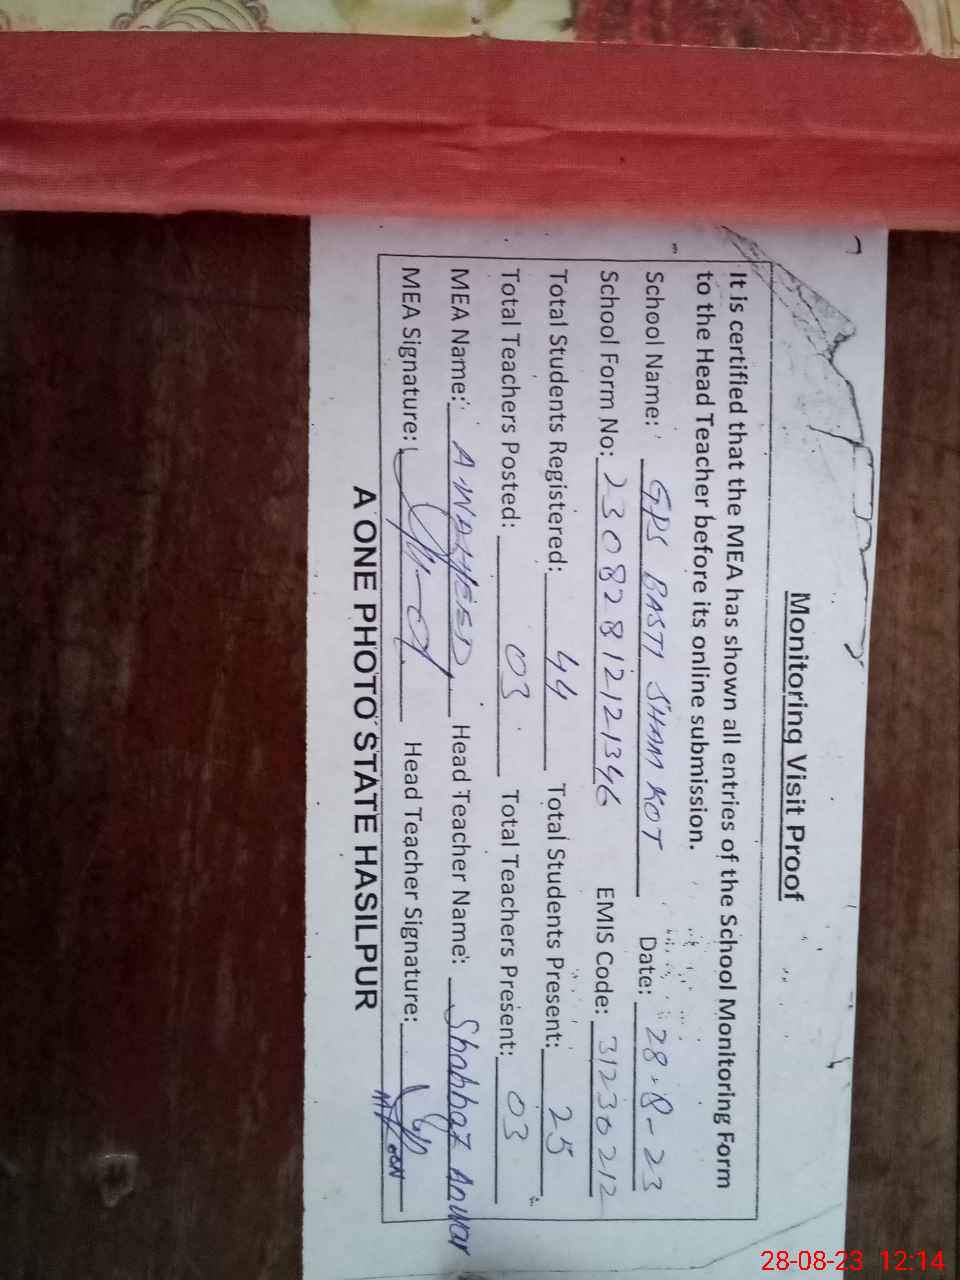 Monitoring Visit Proof
It is certified that the MEA has shown all entries of the School Monitoring Form
to the Head Teacher before its online submission.
School Name: GPS BASTI SHAM KOT Date: 28-8-23
School Form No: 23082812121346 EMIS Code: 31230212
Total Students Registered: 44 Total Students Present: 25
Total Teachers Posted: 03 Total Teachers Present: 03
MEA Name: A WAHEED Head Teacher Name: Shahbaz Anwar
MEA Signature: Head Teacher Signature:
A ONE PHOTO STATE HASILPUR
28-08-23 12:14